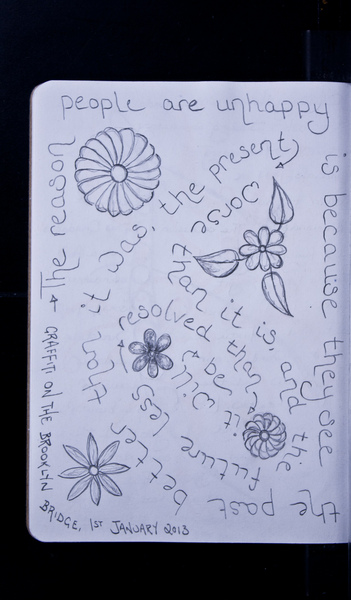 The reason
people are unhappy
is because they see
the past
better
than it was, the present
worse
than it is, and the
future
less
resolved than
it will be
GRAFFITI ON THE BROOKLYN
BRIDGE, 1ST JANUARY 2013